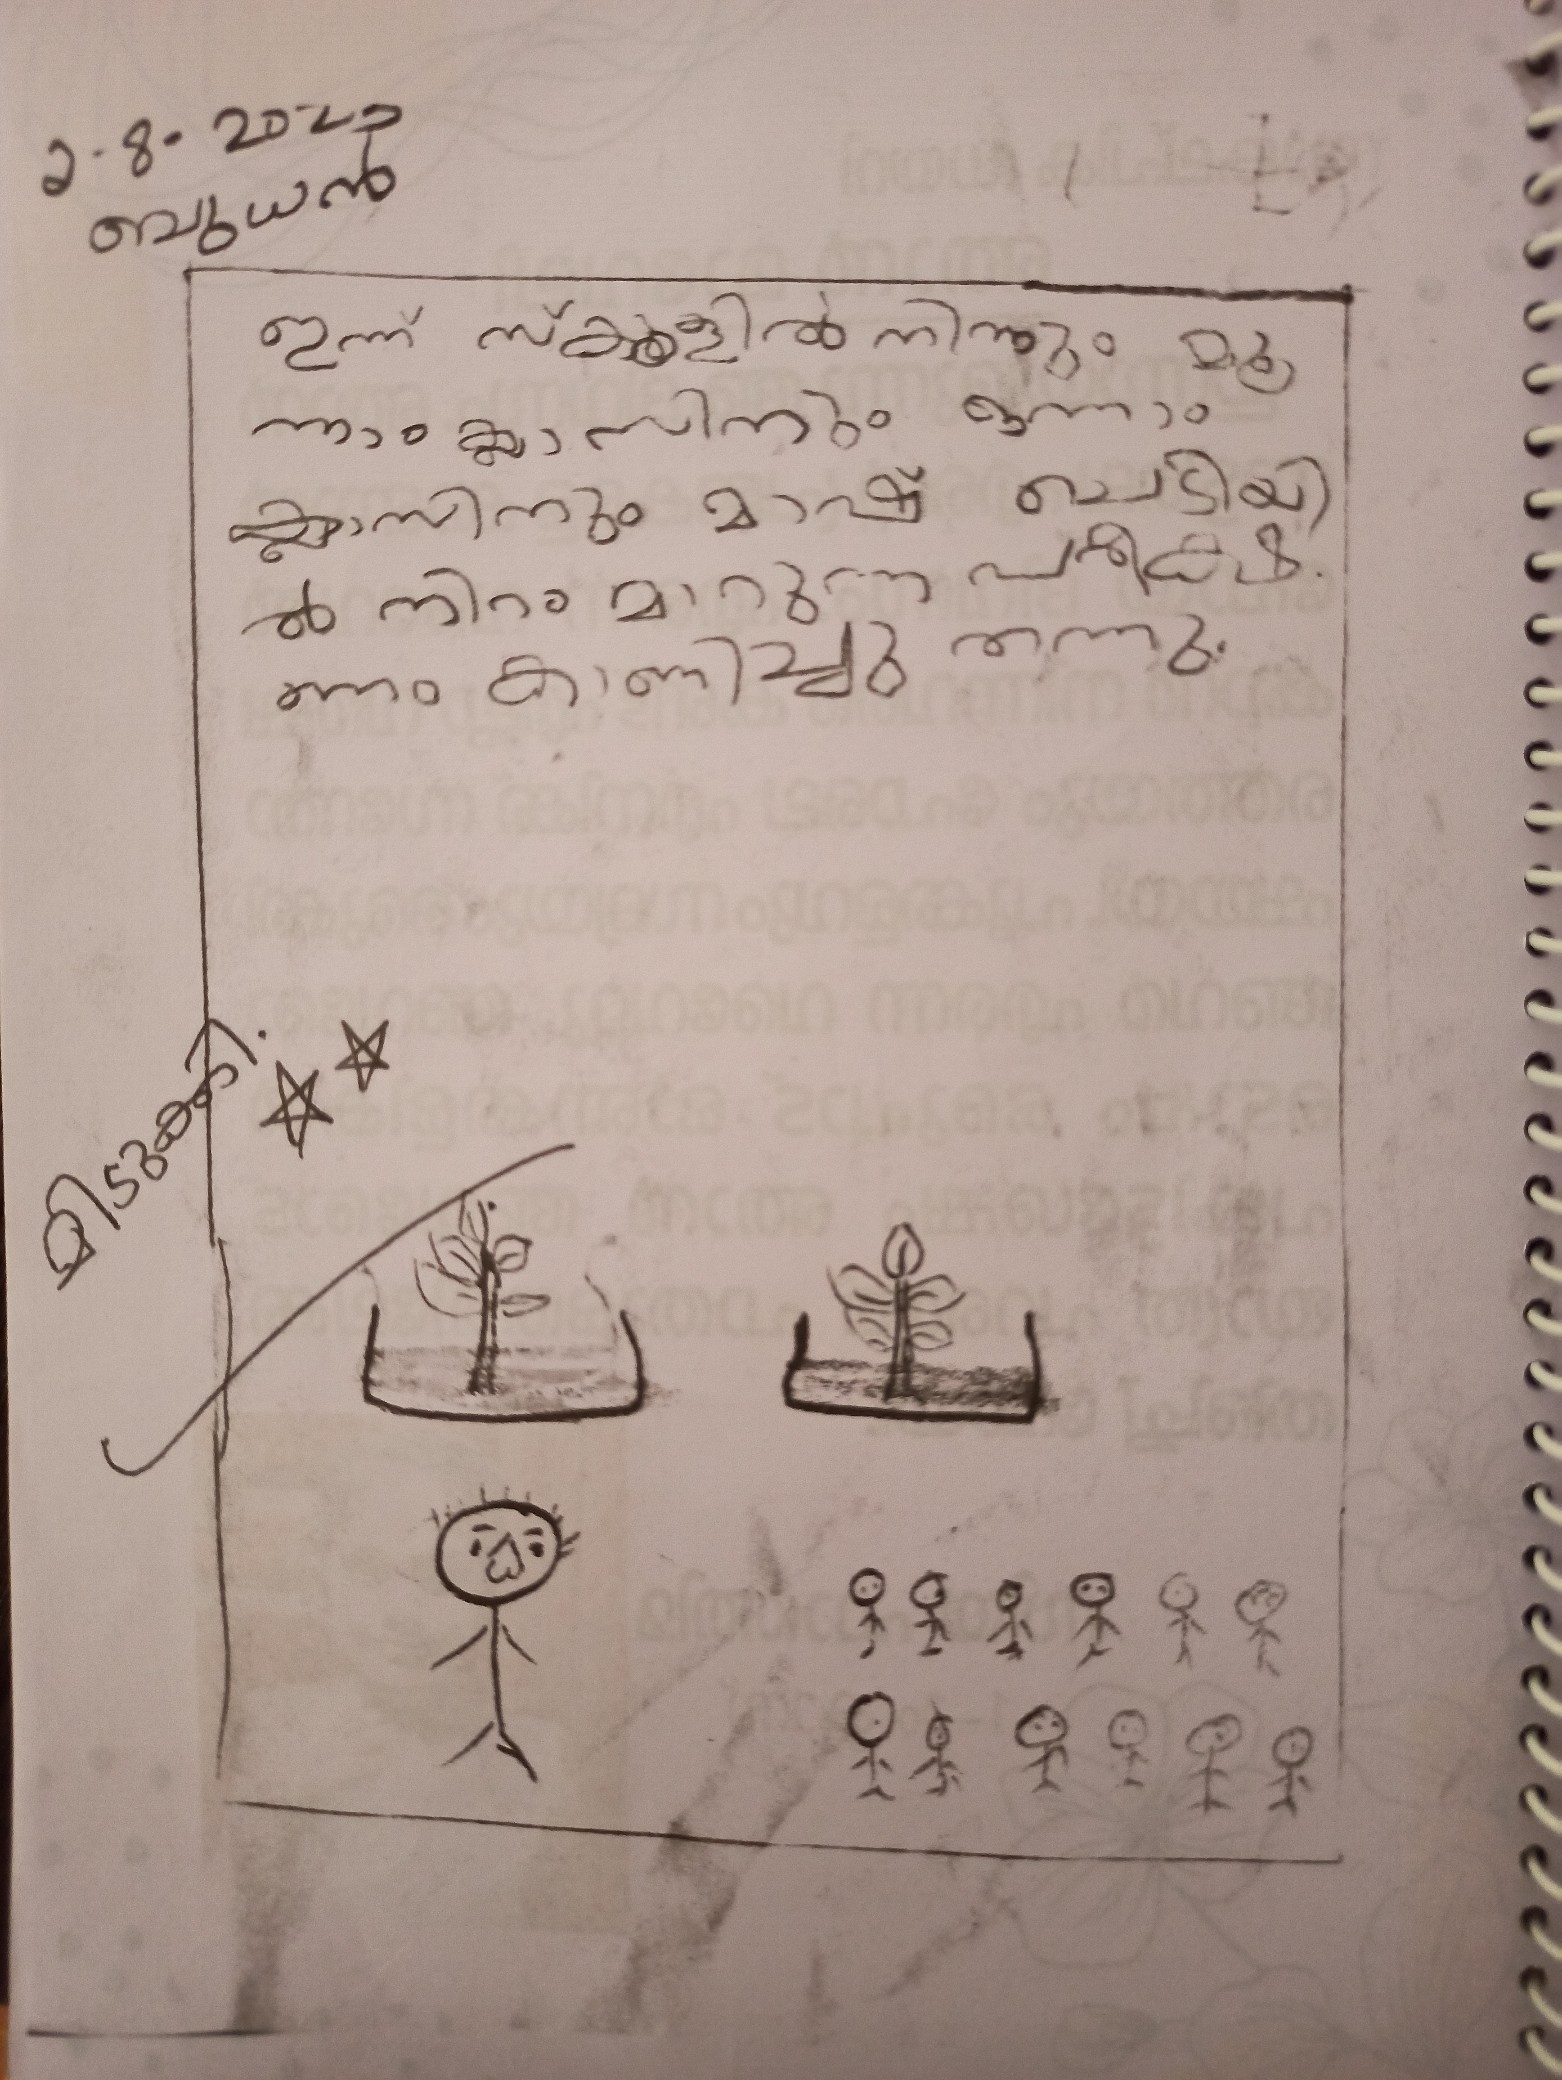 2-8-2023
ബുധൻ
ഇന്ന് സ്കൂളിൽ നിന്നും മൂ
ന്നാം ക്ലാസിനും ഒന്നാം
ക്ലാസിനും മാഷ് ചെടിയി
ൽ നിറം മാറുന്ന പരീക്ഷ
ണം കാണിച്ചു തന്നു.
മിടുക്കി.